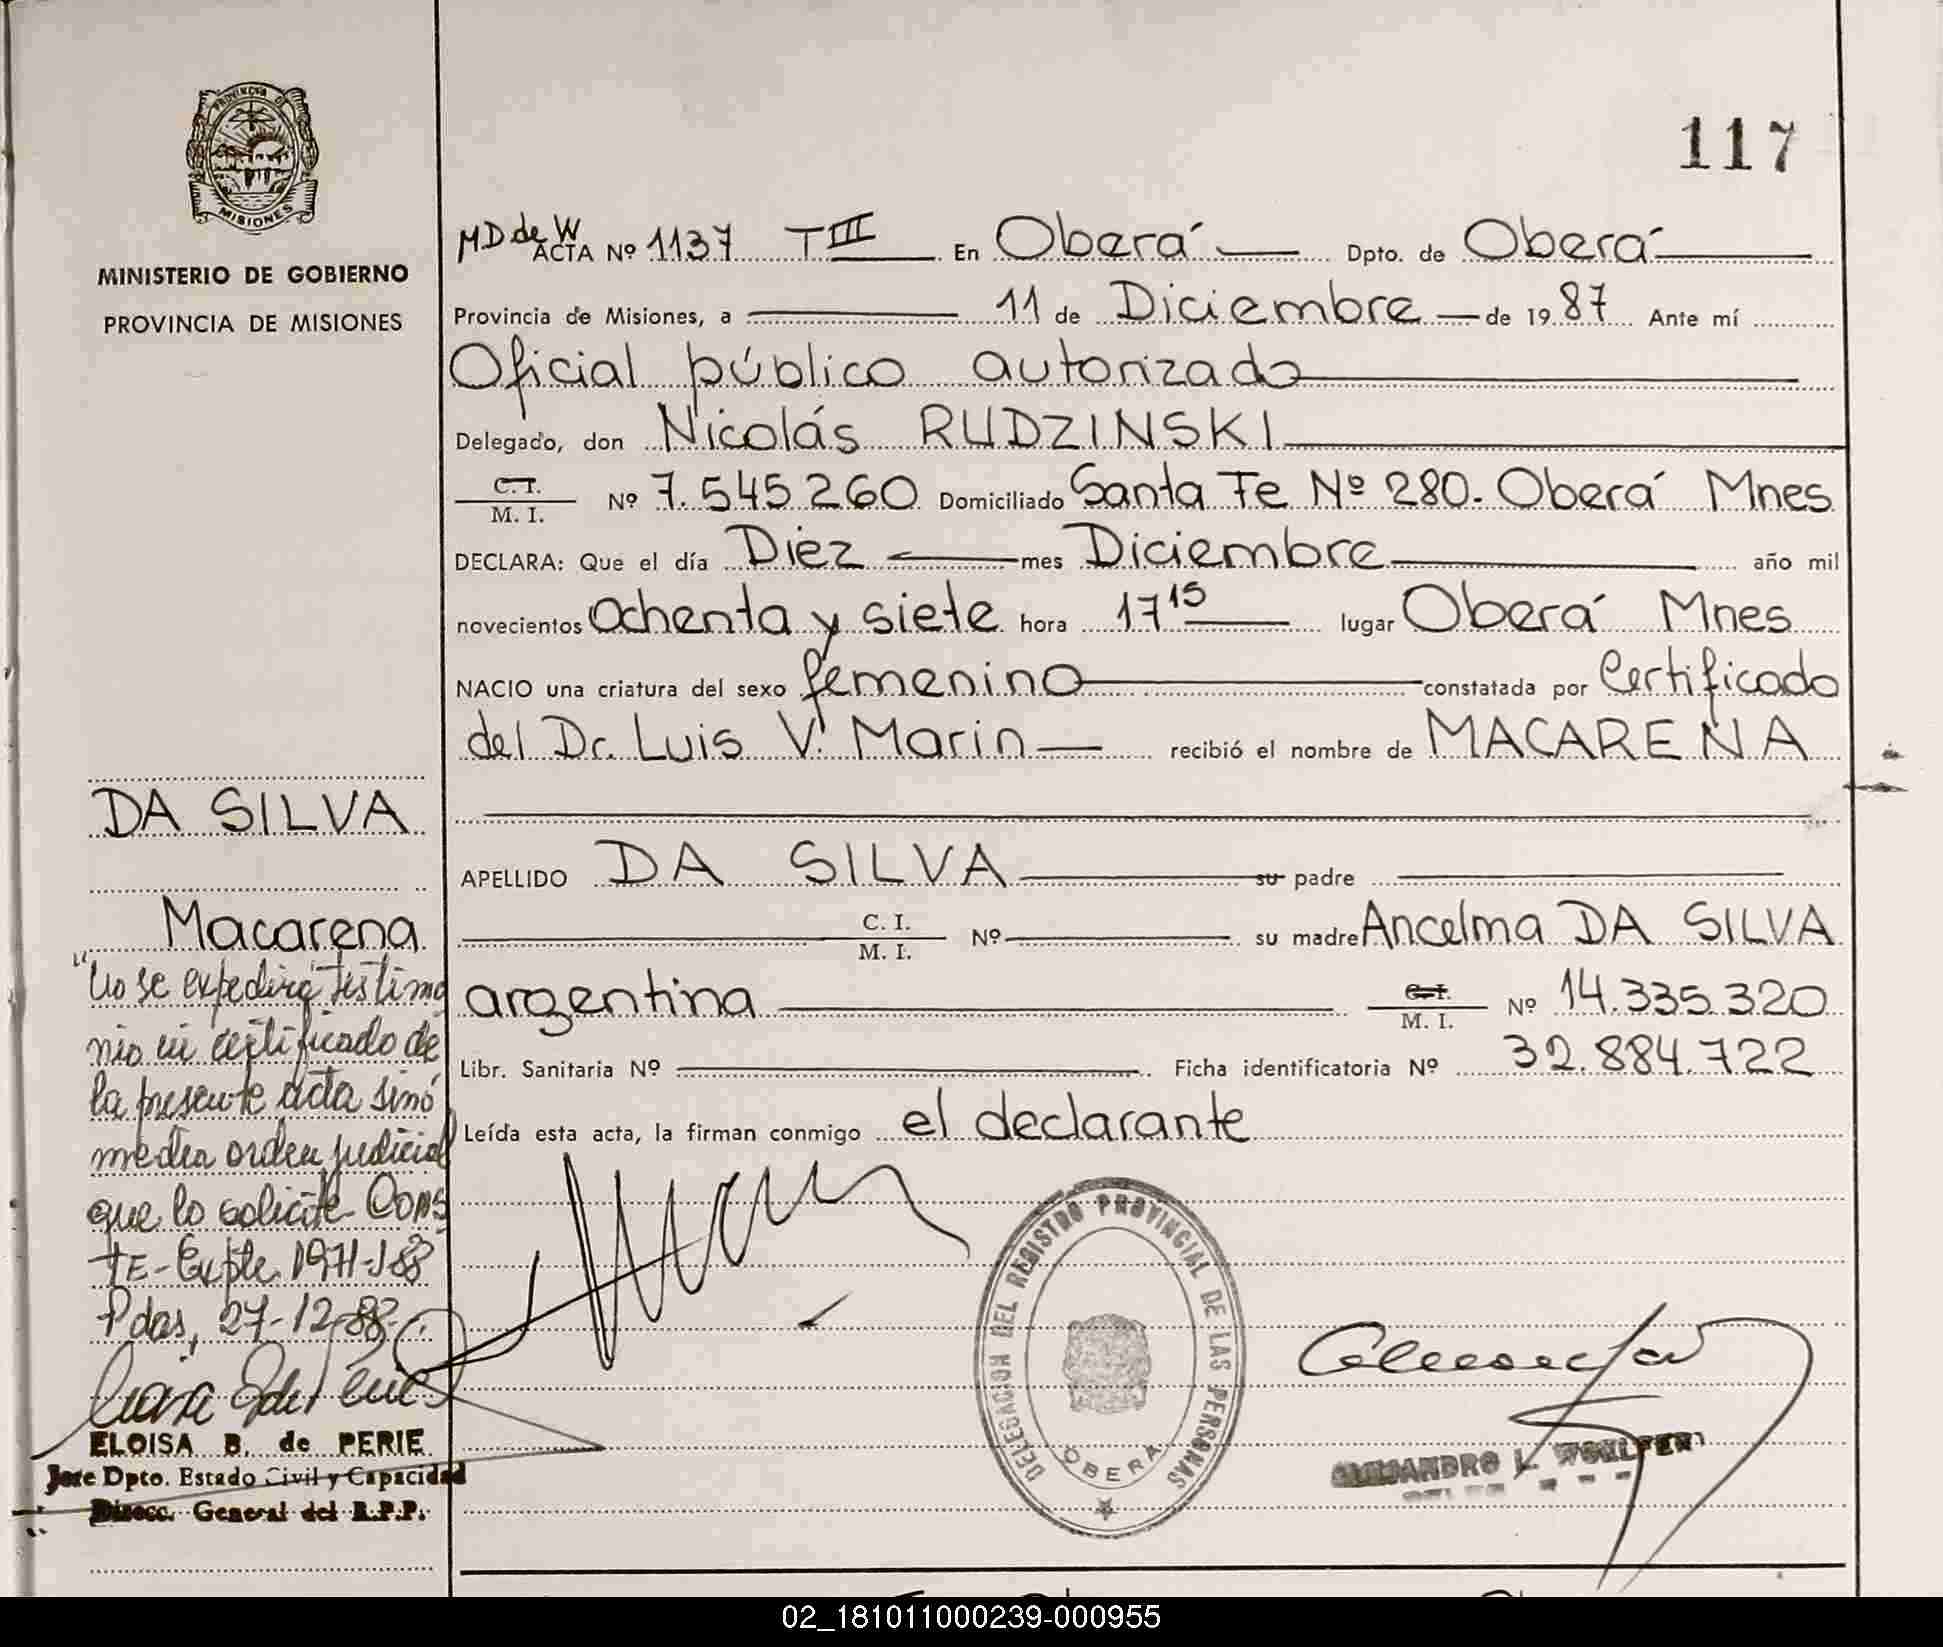 PROVINCIA DE
MISIONES
MINISTERIO DE GOBIERNO
PROVINCIA DE MISIONES
117
MD de W
ACTA Nº 1137 TIII En Oberá Dpto. de Oberá
Provincia de Misiones, a 11 de Diciembre de 1987 Ante mí
Oficial público autorizado
Delegado, don Nicolás RUDZINSKI
C. I.
M. I. Nº 7.545.260 Domiciliado Santa Fe Nº 280. Oberá Mnes
DECLARA: Que el día Diez mes Diciembre año mil
novecientos ochenta y siete hora 17 15 lugar Oberá Mnes
NACIO una criatura del sexo femenino constatada por Certificado
del Dr. Luis V. Marin recibió el nombre de MACARENA
APELLIDO DA SILVA su padre
C. I.
M. I. Nº su madre Ancelma DA SILVA
argentina C. I.
M. I. Nº 14.335.320
Libr. Sanitaria Nº Ficha identificatoria Nº 32.884.722
Leída esta acta, la firman conmigo el declarante
DA SILVA
Macarena
"No se expedirá testimo
nio ni certificado de
la presente acta sinó
media orden judicial
que lo solicite CONS
TE- Expte.
Pdas, 27-12-88
ELOISA B. de PERIE
Jefe Dpto. Estado Civil y Capacidad
Direcc. General del R.P.P.
DELEGACION DEL REGISTRO PROVINCIAL DE LAS PERSONAS
OBERA
ALEJANDRO L.
02_181011000239-000955